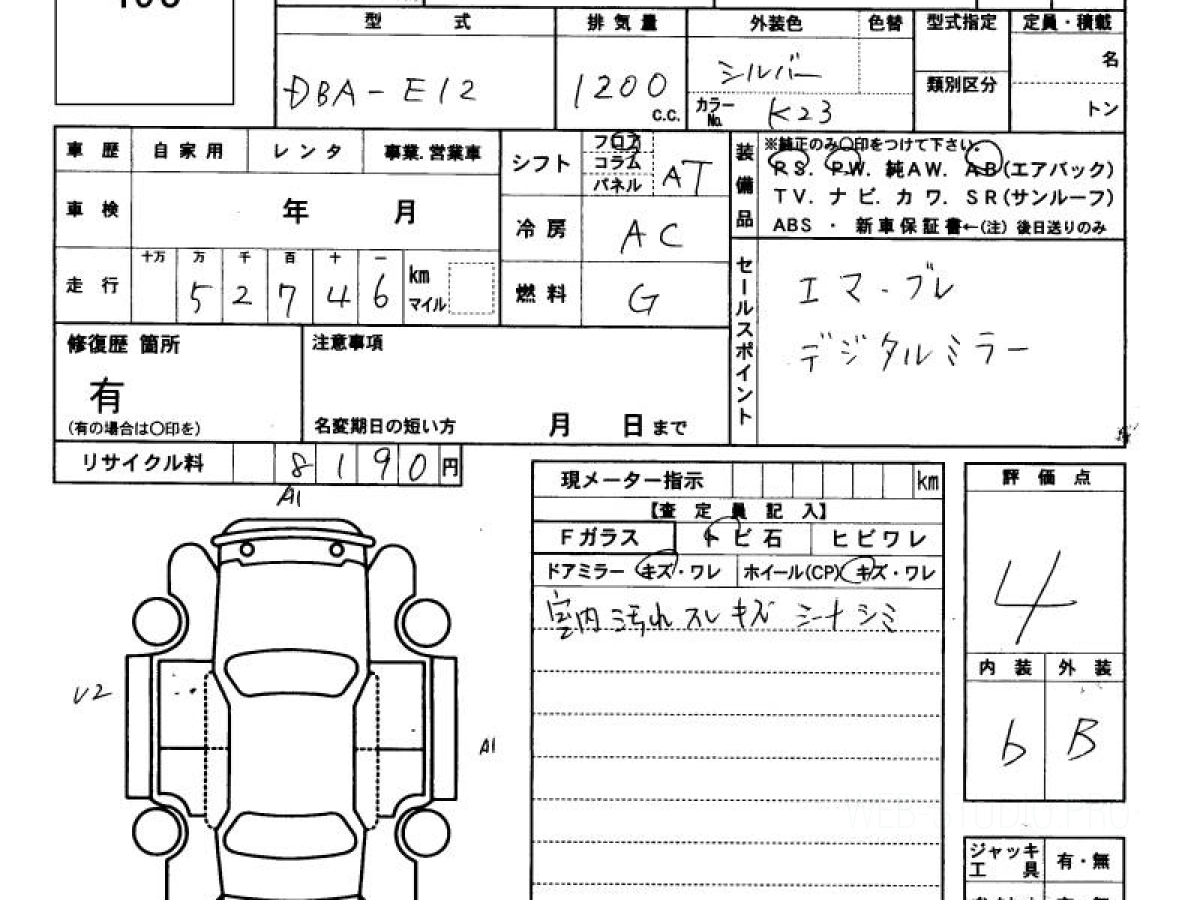 型 式 排気量 外装色 色替 型式指定 定員・積載
DBA-E12 1200 c.c. シルバー 類別区分 名
カラーNo. K23 トン
車歴 自家用 レンタ 事業.営業車
シフト フロア コラム パネル AT
装備品 ※純正のみ○印をつけて下さい。
RS. PW. 純AW. AB(エアバック)
TV. ナビ. カワ. SR(サンルーフ)
ABS ・ 新車保証書←(注) 後日送りのみ
車検 年 月
冷房 AC
走行 十万 万 千 百 十 一
52746 km マイル
燃料 G
セールスポイント
エマ-ブレ
デジタルミラー
修復歴 箇所
有
(有の場合は○印を)
注意事項
名変期日の短い方 月 日まで
リサイクル料 8190円
A1
V2
A1
現メーター指示 km
【査定員記入】
Fガラス トビ石 ヒビワレ
ドアミラー キズ・ワレ ホイール(CP) キズ・ワレ
室内汚れ スレ キズ シートシミ
評価点
4
内装 外装
b B
ジャッキ
工具 有・無